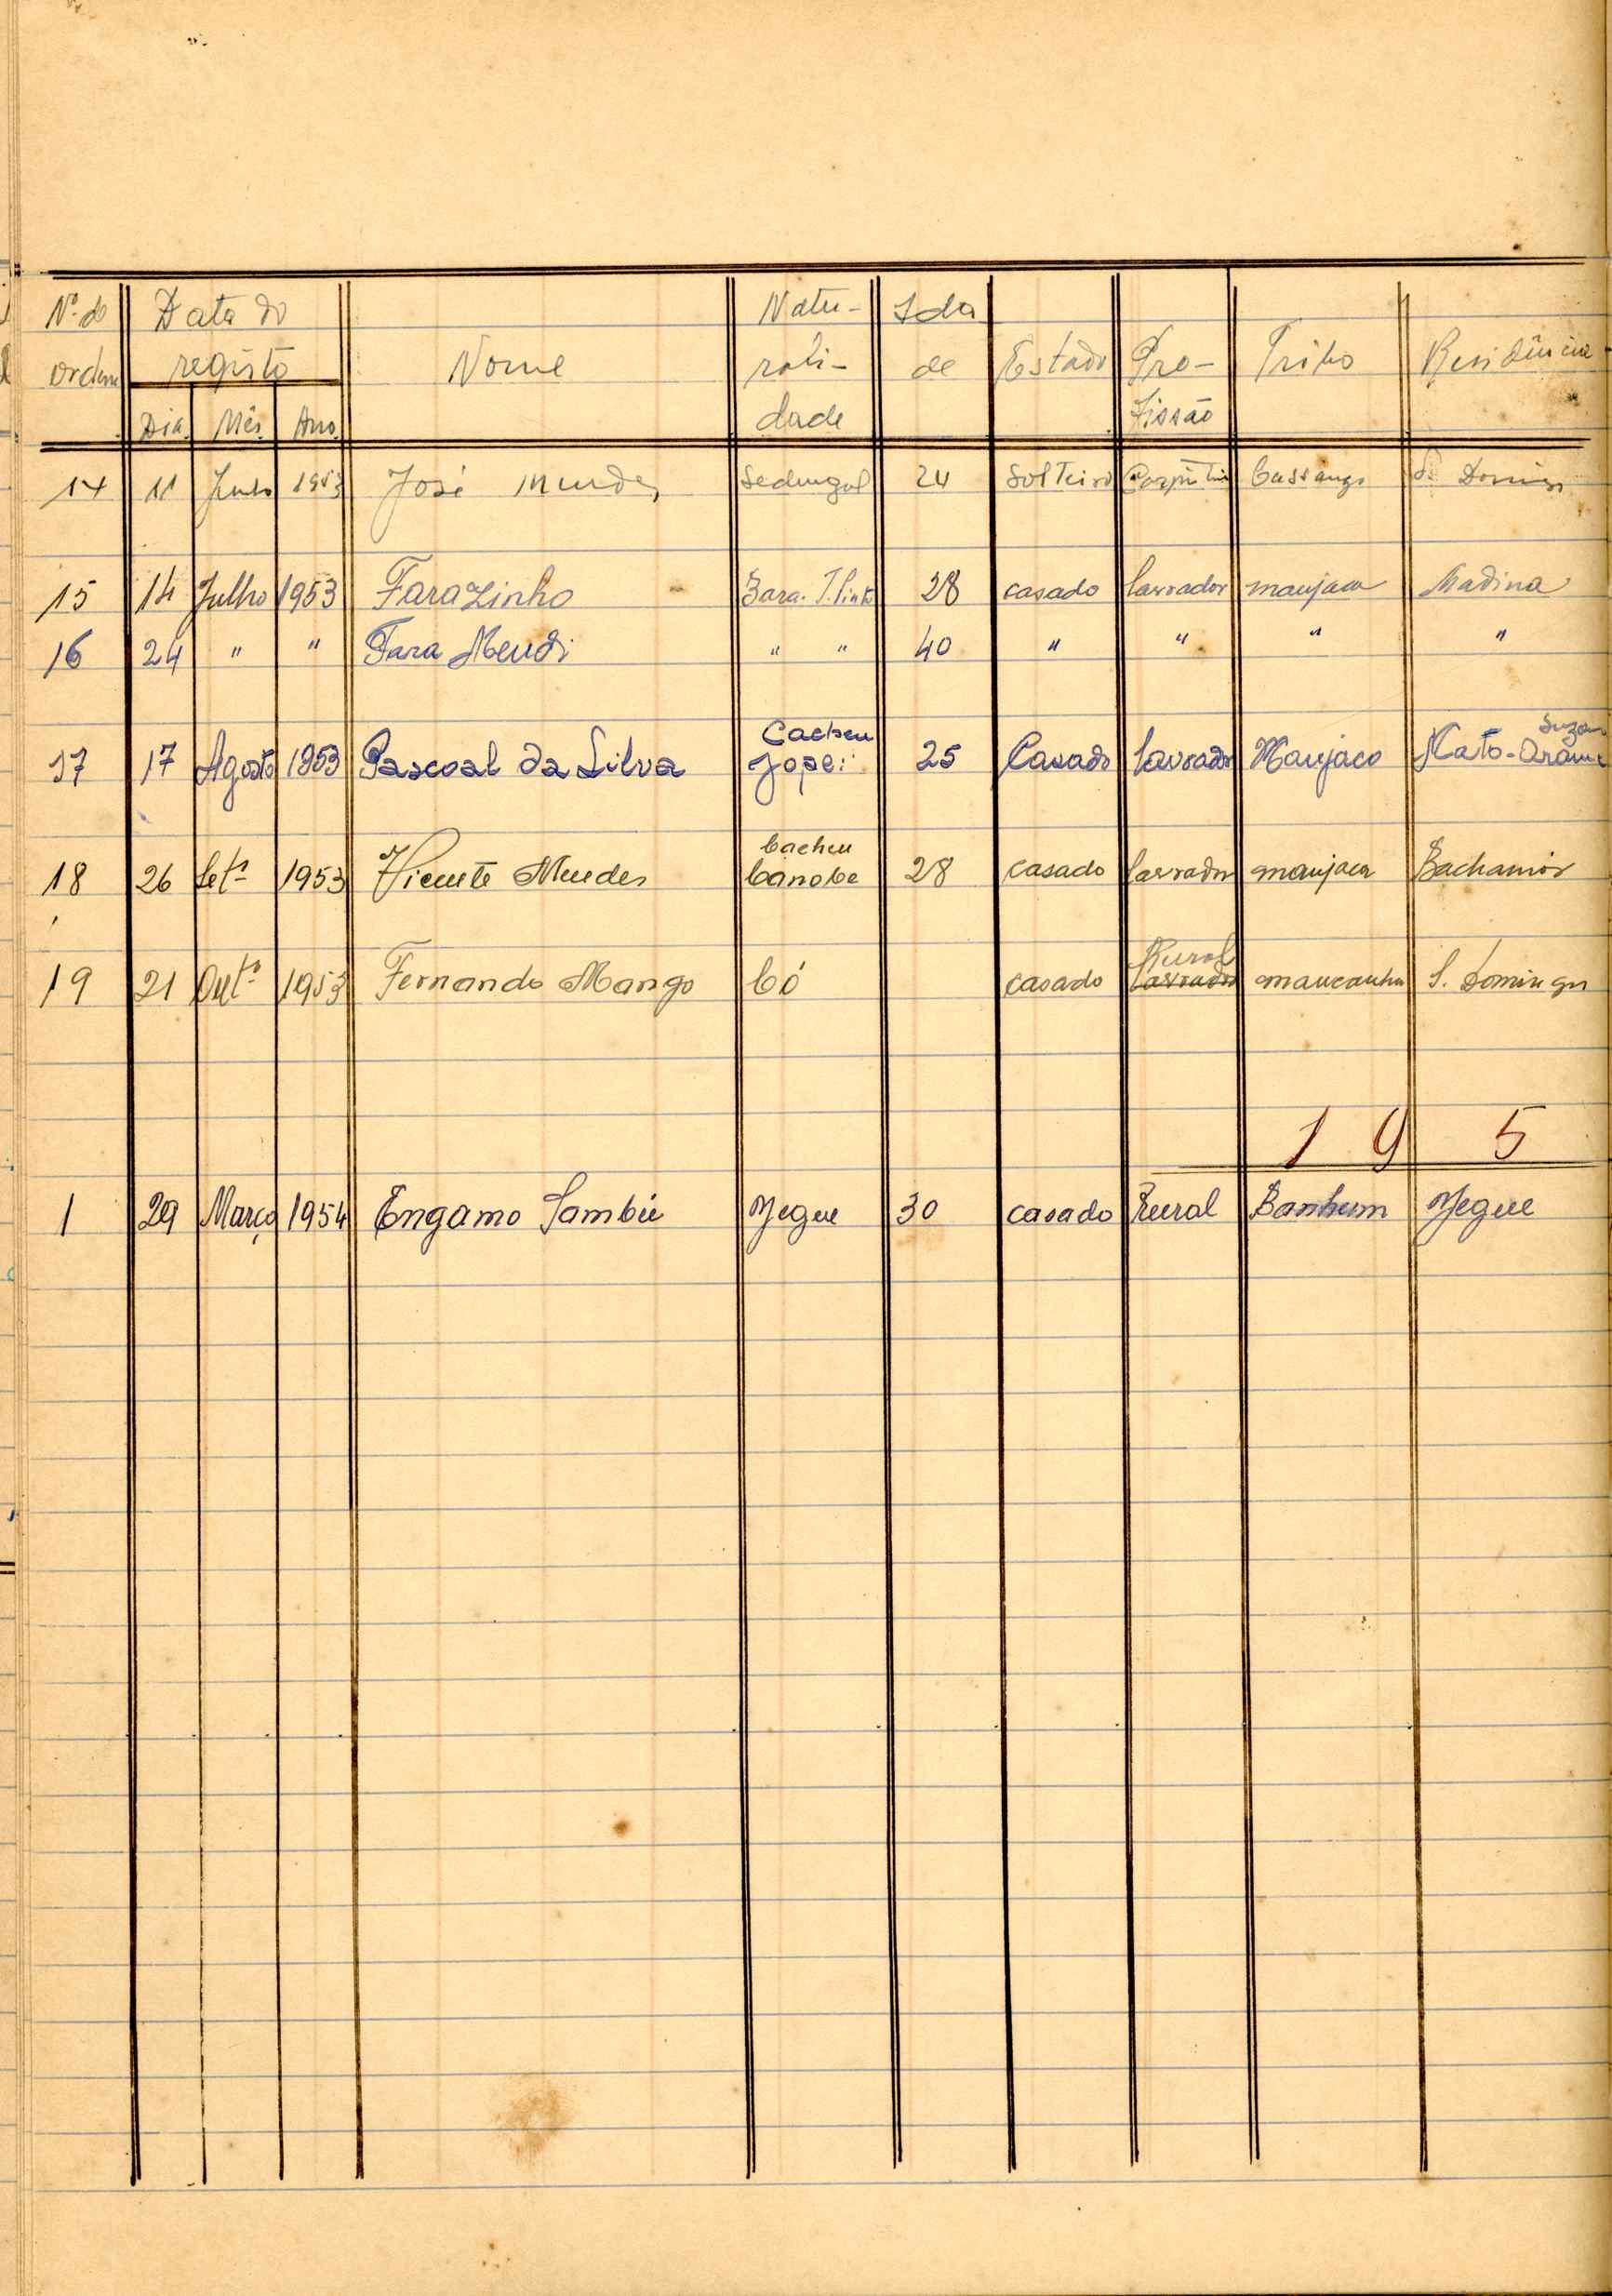 Nº de Data do Natu- Ida
ordem registo Nome rali- de Estado Pro- Tribo Residência
Dia Mês Ano dade fissão
14 11 Junho 1953 José Mendes Sedengal 24 Solteiro Carpinteiro Cassanga S. Domingos
15 14 Julho 1953 Farazinho 28 casado lavrador manjaca Madina
16 24 " " Fara Mendi " " 40 " " " "
Cacheu Suzana
17 17 Agosto 1953 Pascoal da Silva Jopei 25 Casado lavrador Manjaco Mato-Arame
Cacheu
18 26 Setº 1953 Vicente Mendes Canobe 28 casado lavrador manjaca Bachamór
Rural
19 21 Outº 1953 Fernando Mango Có casado lavrador mancanha S. Domingos
1 9 5
1 29 Março 1954 Engamo Sambú Jegue 30 casado Rural Banhum Jegue